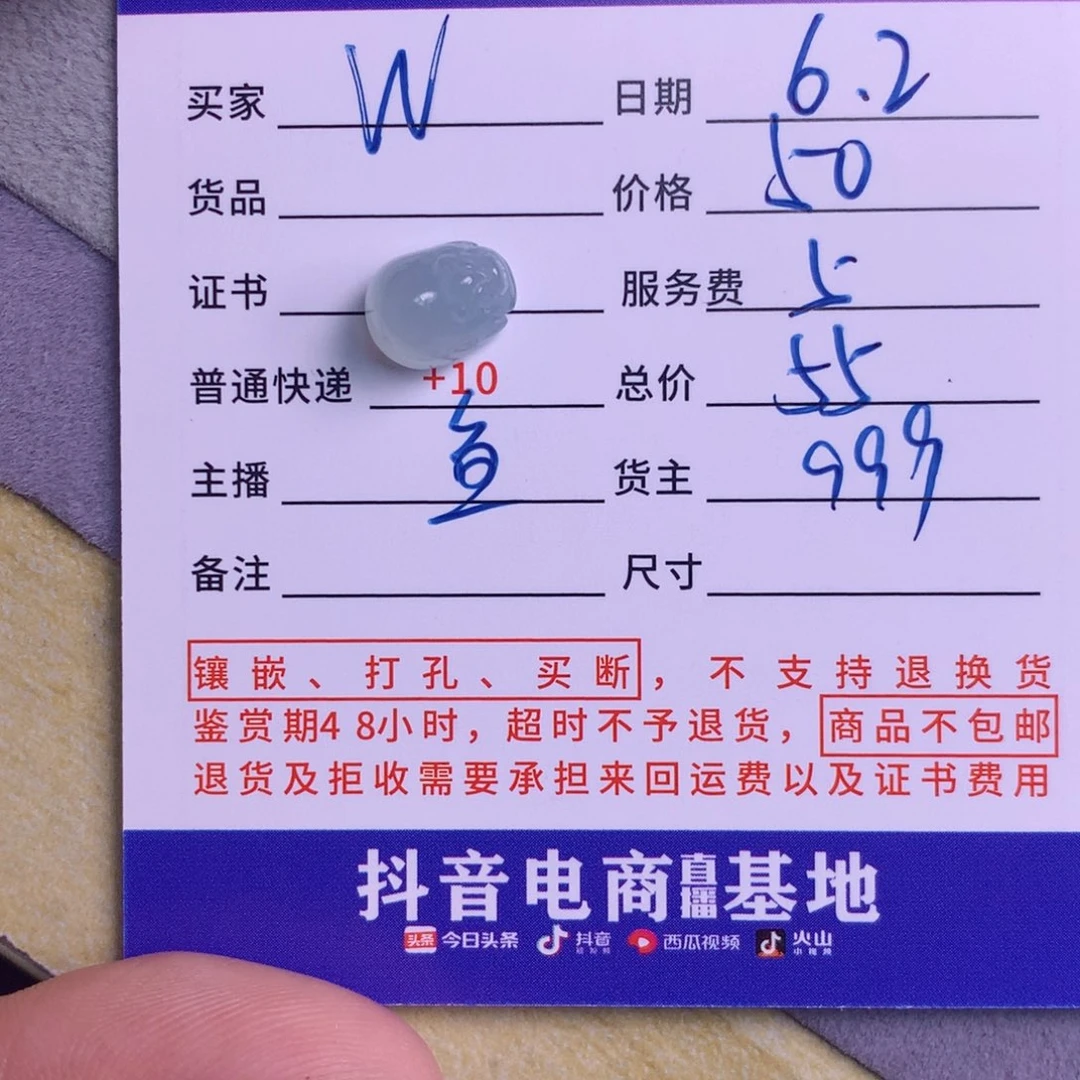 买家 W 日期 6.2
货品 价格 50
证书 服务费 5
普通快递 +10 总价 55
主播 鱼 货主 999
备注 尺寸
镶嵌、打孔、买断，不支持退换货
鉴赏期48小时，超时不予退货，商品不包邮
退货及拒收需要承担来回运费以及证书费用
抖音电商直播基地
头条 今日头条 抖音 短视频 西瓜视频 火山 小视频